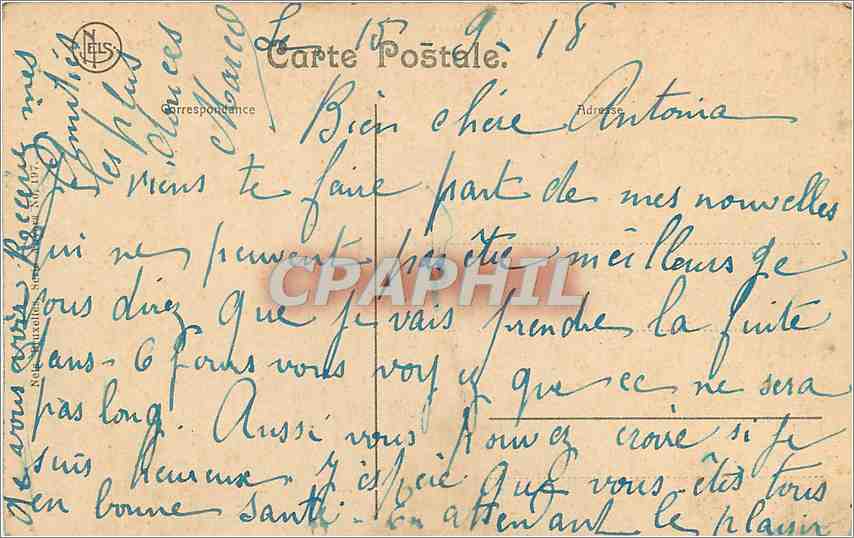 Le 15 9 18
NELS
Carte Postale.
Correspondance
Adresse
Bien chère Antonia
Je viens te faire part de mes nouvelles
qui ne peuvent pas être meilleurs je
vous direz que je vais prendre la fuite
dans 6 jours vous voyez que ce ne sera
pas long. Aussi vous pouvez croire si je
suis heureux. J'espère que vous êtes tous
en bonne santé - en attendant le plaisir
de vous voir Recevez mes
amitiés
les plus
douces
Marcel
Nels, Bruxelles, Série No. 197.
CPAPHIL